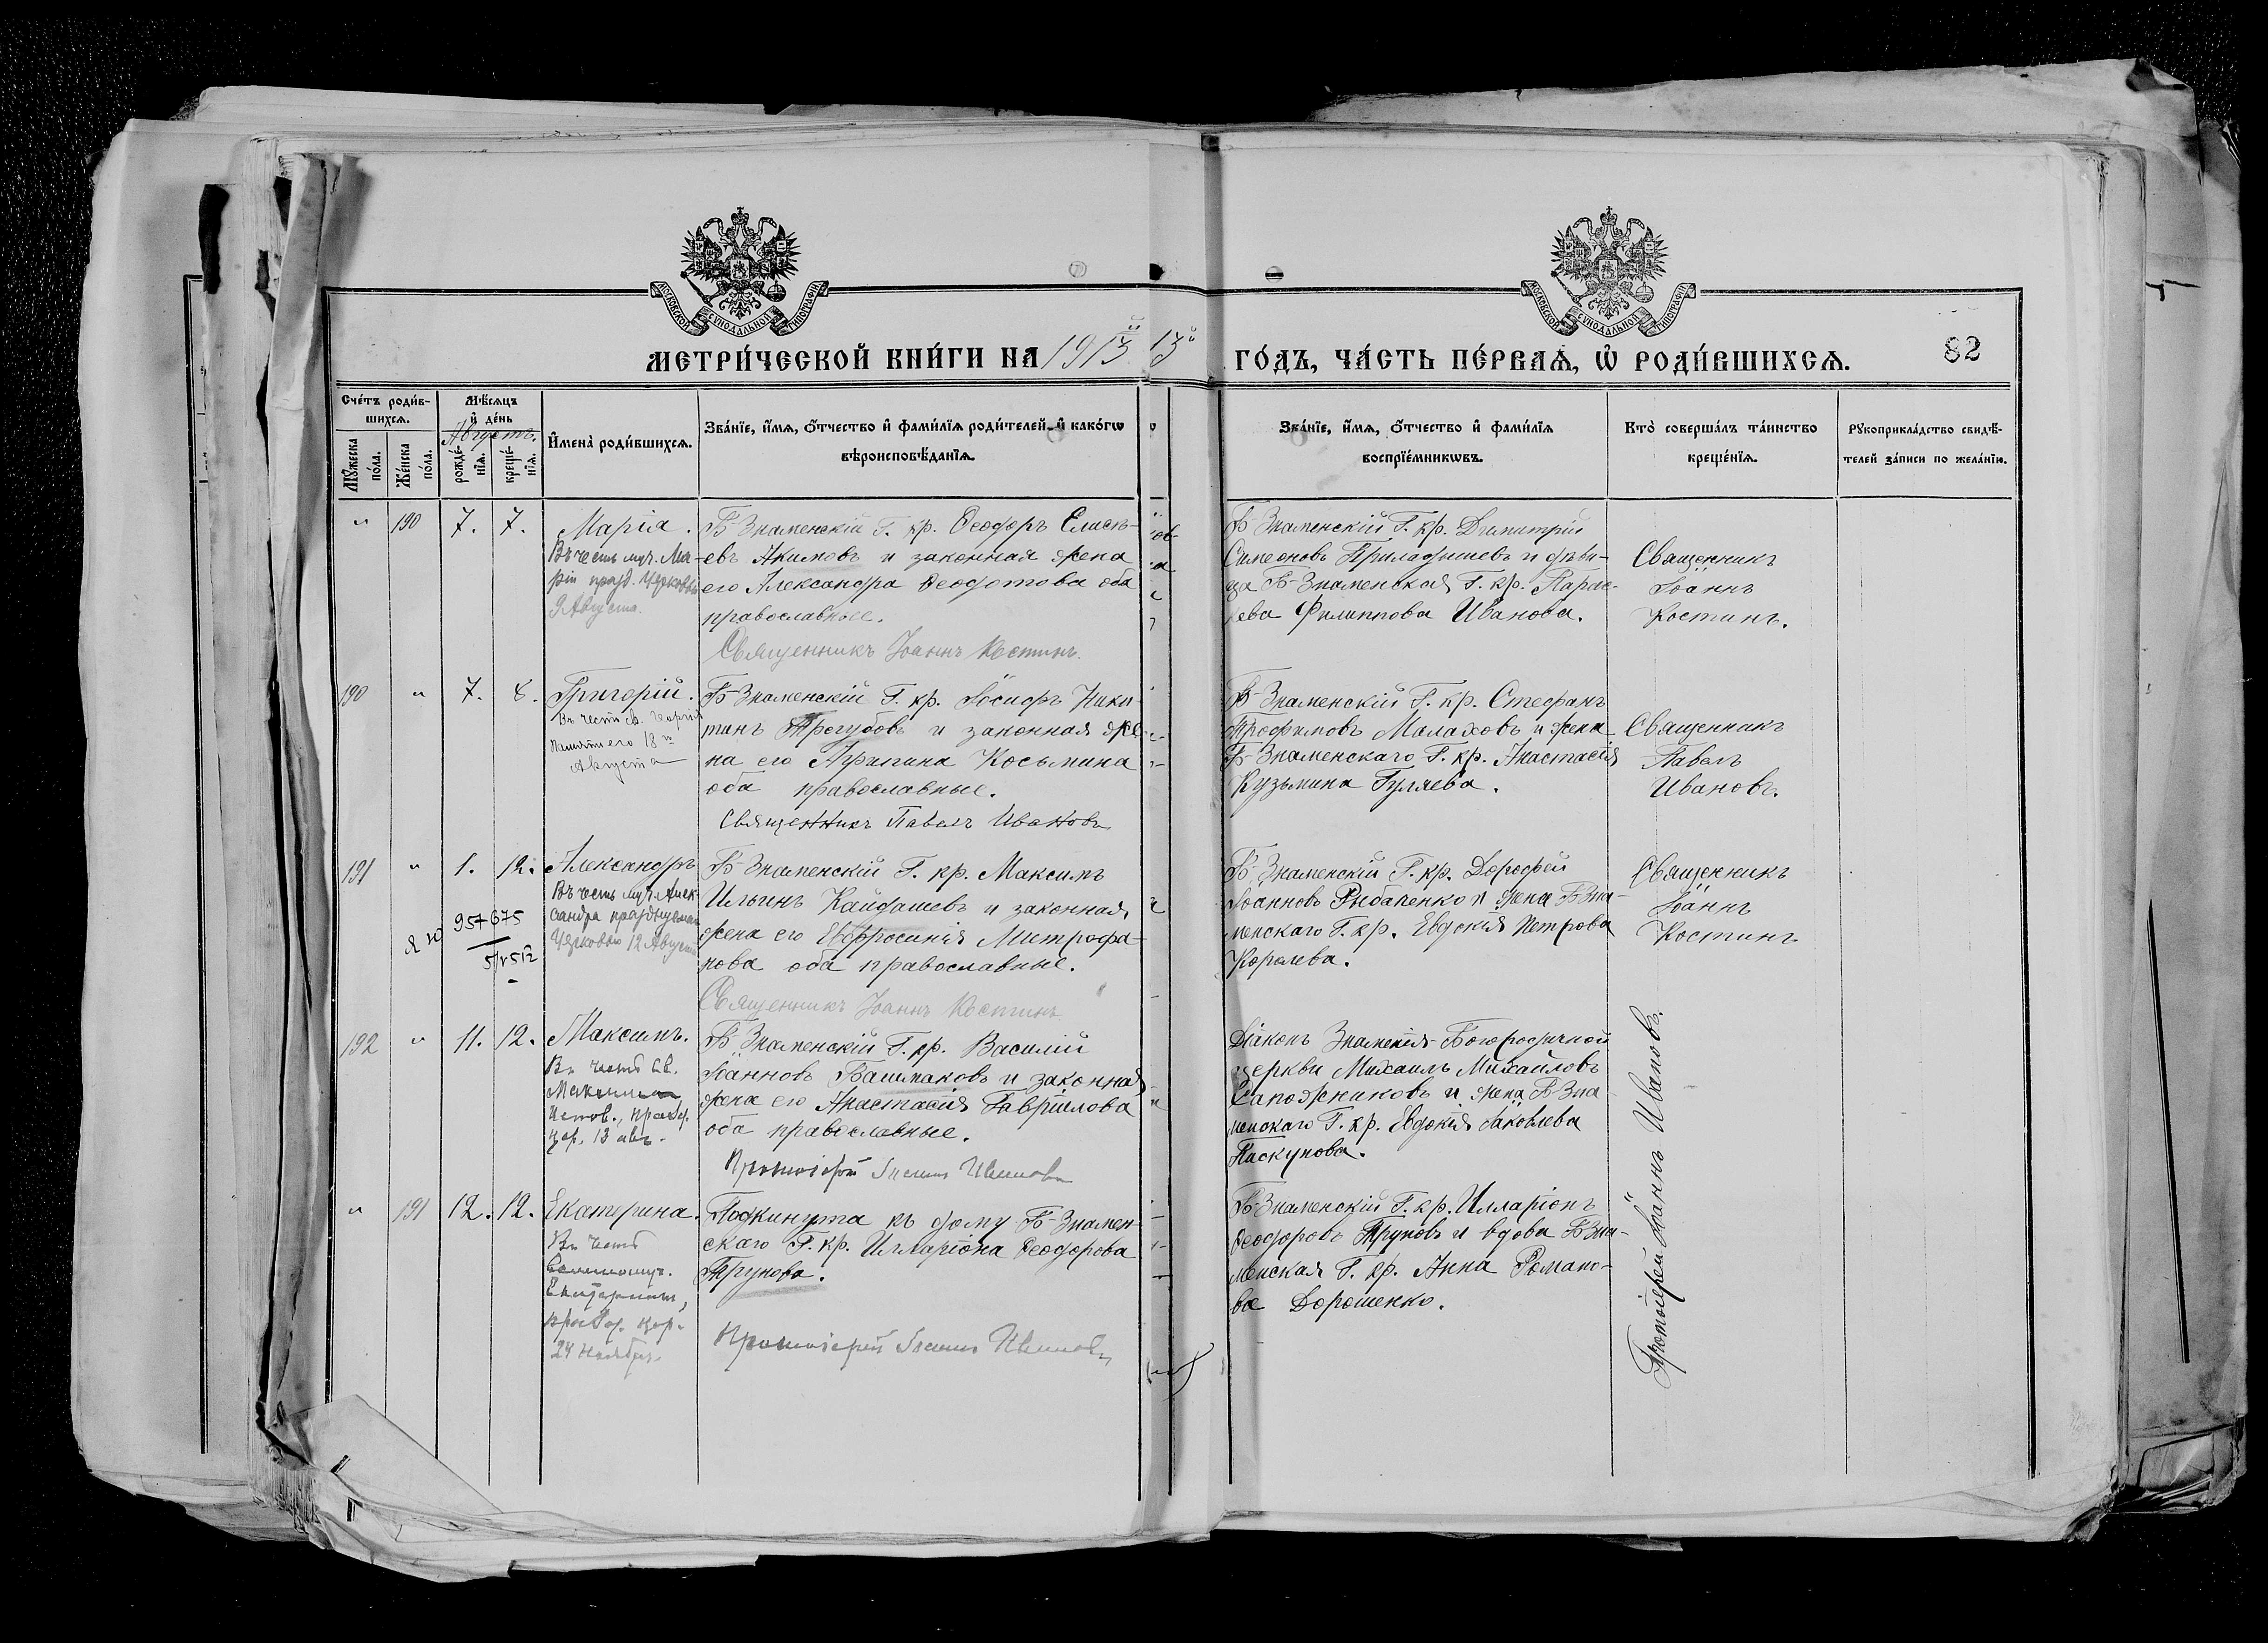 МОСКОВСКОЙ СѴНОДАЛЬНОЙ ТИПОГРАФІИ
МОСКОВСКОЙ СѴНОДАЛЬНОЙ ТИПОГРАФІИ
МЕТРИ́ЧЕСКОЙ КНИ́ГИ НА 1913й
13й ГО́ДЪ, ЧА́СТЬ ПЕ́РВАѦ, Ѡ҆ РОДИ́ВШИХСѦ.
82
Сче́тъ роди́в-
шихсѧ.
Мꙋжеска по́ла.
Же́нска по́ла.
Мѣ́сѧцъ и҆ де́нь
Августъ.
рожде́-нїѧ.
креще́-нїѧ.
И҆мена̀ роди́вшихсѧ.
Зва́нїе, и҆́мѧ, ѻ҆́тчество и҆ фами́лїѧ роди́телей, и҆ како́гѡ
вѣроисповѣ́данїѧ.
Зва́нїе, и҆́мѧ, ѻ҆́тчество и҆ фами́лїѧ
воспрїе́мникѡвъ.
Кто̀ соверша́лъ та́инство
креще́нїѧ.
Рꙋкоприкла́дство свидѣ́-
телей за́писи по жела́нїю.
" 190 7. 7. Марія.
Въ честь муч. Ма-
ріи празд. Церковью
9 Августа.
Б-Знаменскій Г. кр. Ѳеодоръ Елисѣ-
евъ Акимовъ и законная жена
его Александра Ѳеодотова оба
православные.
Священникъ Іоаннъ Костинъ.
Б-Знаменскій Г. кр. Димитрій
Симеоновъ Приладышевъ и дѣви-
ца Б-Знаменская Г. кр. Парас-
кева Филиппова Иванова.
Священникъ
Іоаннъ
Костинъ.
190 " 7. 8. Григорій.
Въ честь св.
Память его 18го
Августа
Б-Знаменскій Г. кр. Іосифъ Ники-
тинъ Трегубовъ и законная же-
на его Агрипина Косьмина
оба православные.
Священникъ Павелъ Ивановъ
Б-Знаменскій Г. кр. Стефанъ
Трофимовъ Малаховъ и жена
Б-Знаменскаго Г. кр. Анастасія
Кузьмина Гуляева.
Священникъ
Павелъ
Ивановъ.
191 " 1. 12. Александръ
Въ честь муч. Алек-
сандра празднуемаго
Церковью 12 Августа
957675
Б-Знаменскій Г. кр. Максимъ
Ильинъ Кайдашевъ и законная
жена его Евфросинія Митрофа-
нова оба православные.
Священникъ Іоаннъ Костинъ
Б-Знаменскій Г. кр. Дорофей
Іоанновъ Рыбаленко и жена Б-Зна-
менскаго Г. кр. Евдокія Петрова
Королева.
Священникъ
Іоаннъ
Костинъ
192 " 11. 12. Максимъ.
Въ честь Св.
Максима
Испов., празд.
цер. 13 авг.
Б-Знаменскій Г. кр. Василій
Іоанновъ Башмаковъ и законная
жена его Анастасія Гавріилова
оба православные.
Протоіерей Іоаннъ Ивановъ
Діаконъ Знаменія-Богородичной
церкви Михаилъ Михайловъ
Сапожниковъ и жена Б-Зна-
менскаго Г. кр. Евдокія Іаковлева
Паскунова.
" 191 12. 12. Екатерина.
Въ честь
великомуч.
Екатерины,
празд. цер.
24 Ноября
Подкинута къ дому Б-Знамен-
скаго Г. кр. Илларіона Ѳеодорова
Трунова.
Протоіерей Іоаннъ Ивановъ
Б-Знаменскій Г. кр. Илларіонъ
Ѳеодоровъ Труновъ и вдова Б-Зна-
менская Г. кр. Анна Романо-
ва Дорошенко.
Протоіерей Іоаннъ Ивановъ.